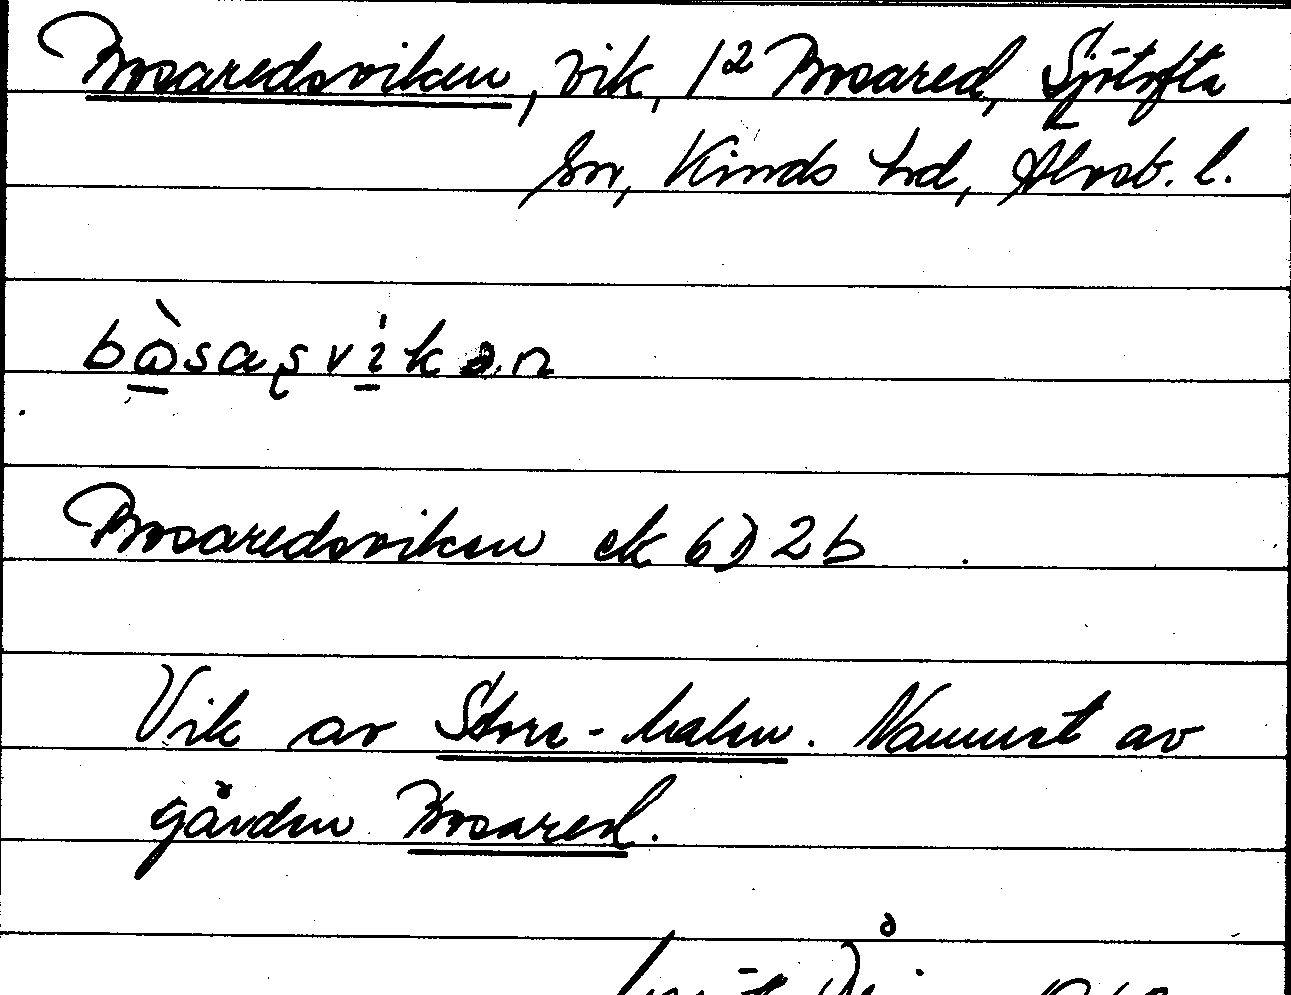 Bosaredsviken, vik, 1² Bosared, Sjötofta
sn, Kinds hd, Älvsb. l.
bòsaşvikən
Bosaredsviken ek 6D 2b
Vik av Store-halen. Namnet av
gården Bosared.